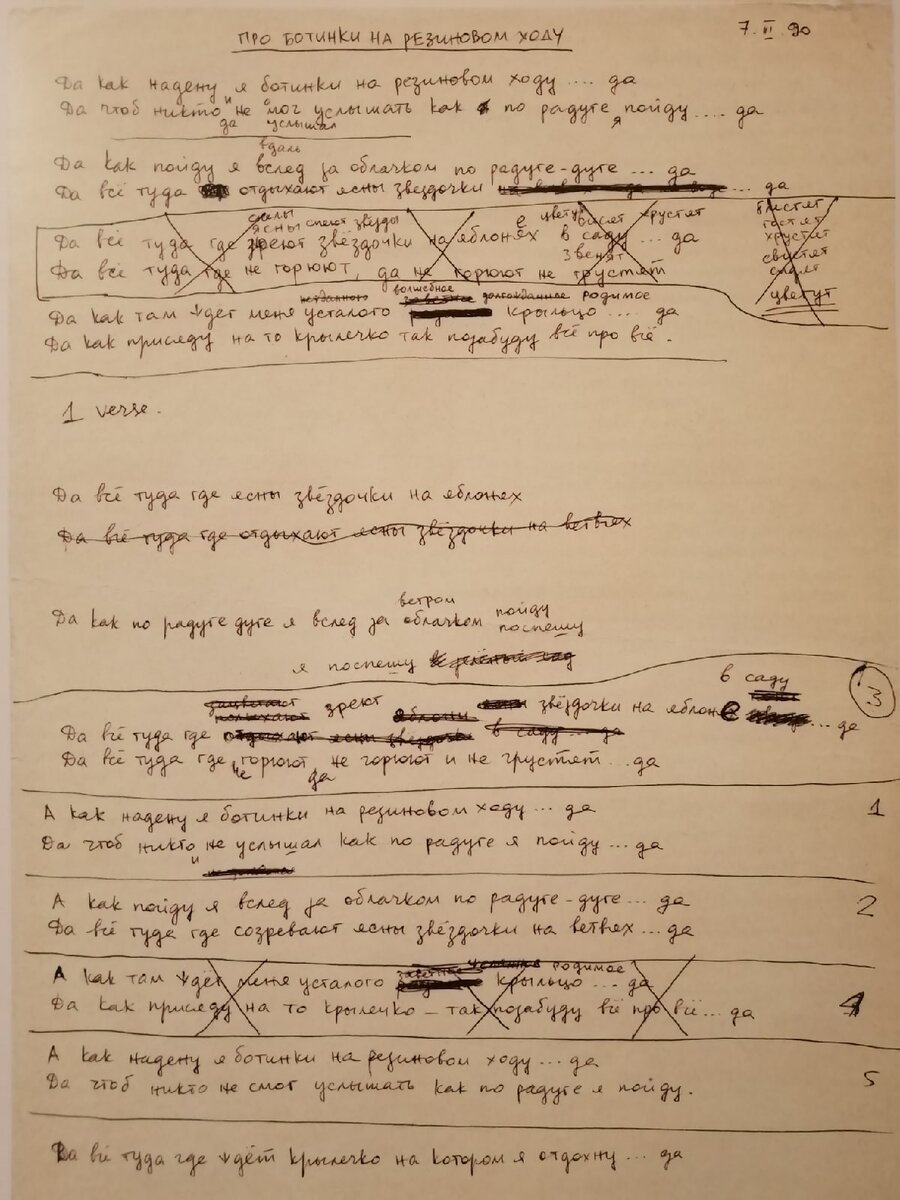 ПРО БОТИНКИ НА РЕЗИНОВОМ ХОДУ
7.VI 90
Да как надену я ботинки на резиновом ходу .... да
Да чтоб никто и не мог услышать как по радуге я пойду .... да
да услышал
вдаль
Да как пойду я вслед за облачком по радуге-дуге ... да
Да всё туда отдыхают ясны звездочки ... да
ясны спеют звёзды е цвету висят хрустят блестят
Да всё туда где зреют звёздочки на яблонях в саду ... да гостят
звенят хрустят
Да всё туда где не горюют, да не горюют не грустят свистят
спят
цветут
волшебное долгожданное родимое
Да как там ждет меня усталого крыльцо .... да
Да как присяду на то крылечко так позабуду всё про всё.
1 verse.
Да всё туда где ясны звёздочки на яблонях
Да всё туда где отдыхают ясны звёздочки на ветвях
ветром пойду
Да как по радуге дуге я вслед за облачком поспешу
я поспешу в зелёный сад
в саду 3
зреют звёздочки на яблоне ... да
Да всё туда где отдыхают ясны звездочки в саду ... да
Да всё туда где не горюют да не горюют и не грустят ... да
А как надену я ботинки на резиновом ходу ... да 1
Да чтоб никто и не услышал как по радуге я пойду ... да
А как пойду я вслед за облачком по радуге-дуге ... да 2
Да всё туда где созревают ясны звёздочки на ветвях ... да
родимое
А как там ждёт меня усталого крыльцо ... да
Да как присяду на то крылечко – так позабуду всё про всё ... да 4
А как надену я ботинки на резиновом ходу ... да
Да чтоб никто не смог услышать как по радуге я пойду. 5
Да всё туда где ждёт крылечко на котором я отдохну ... да